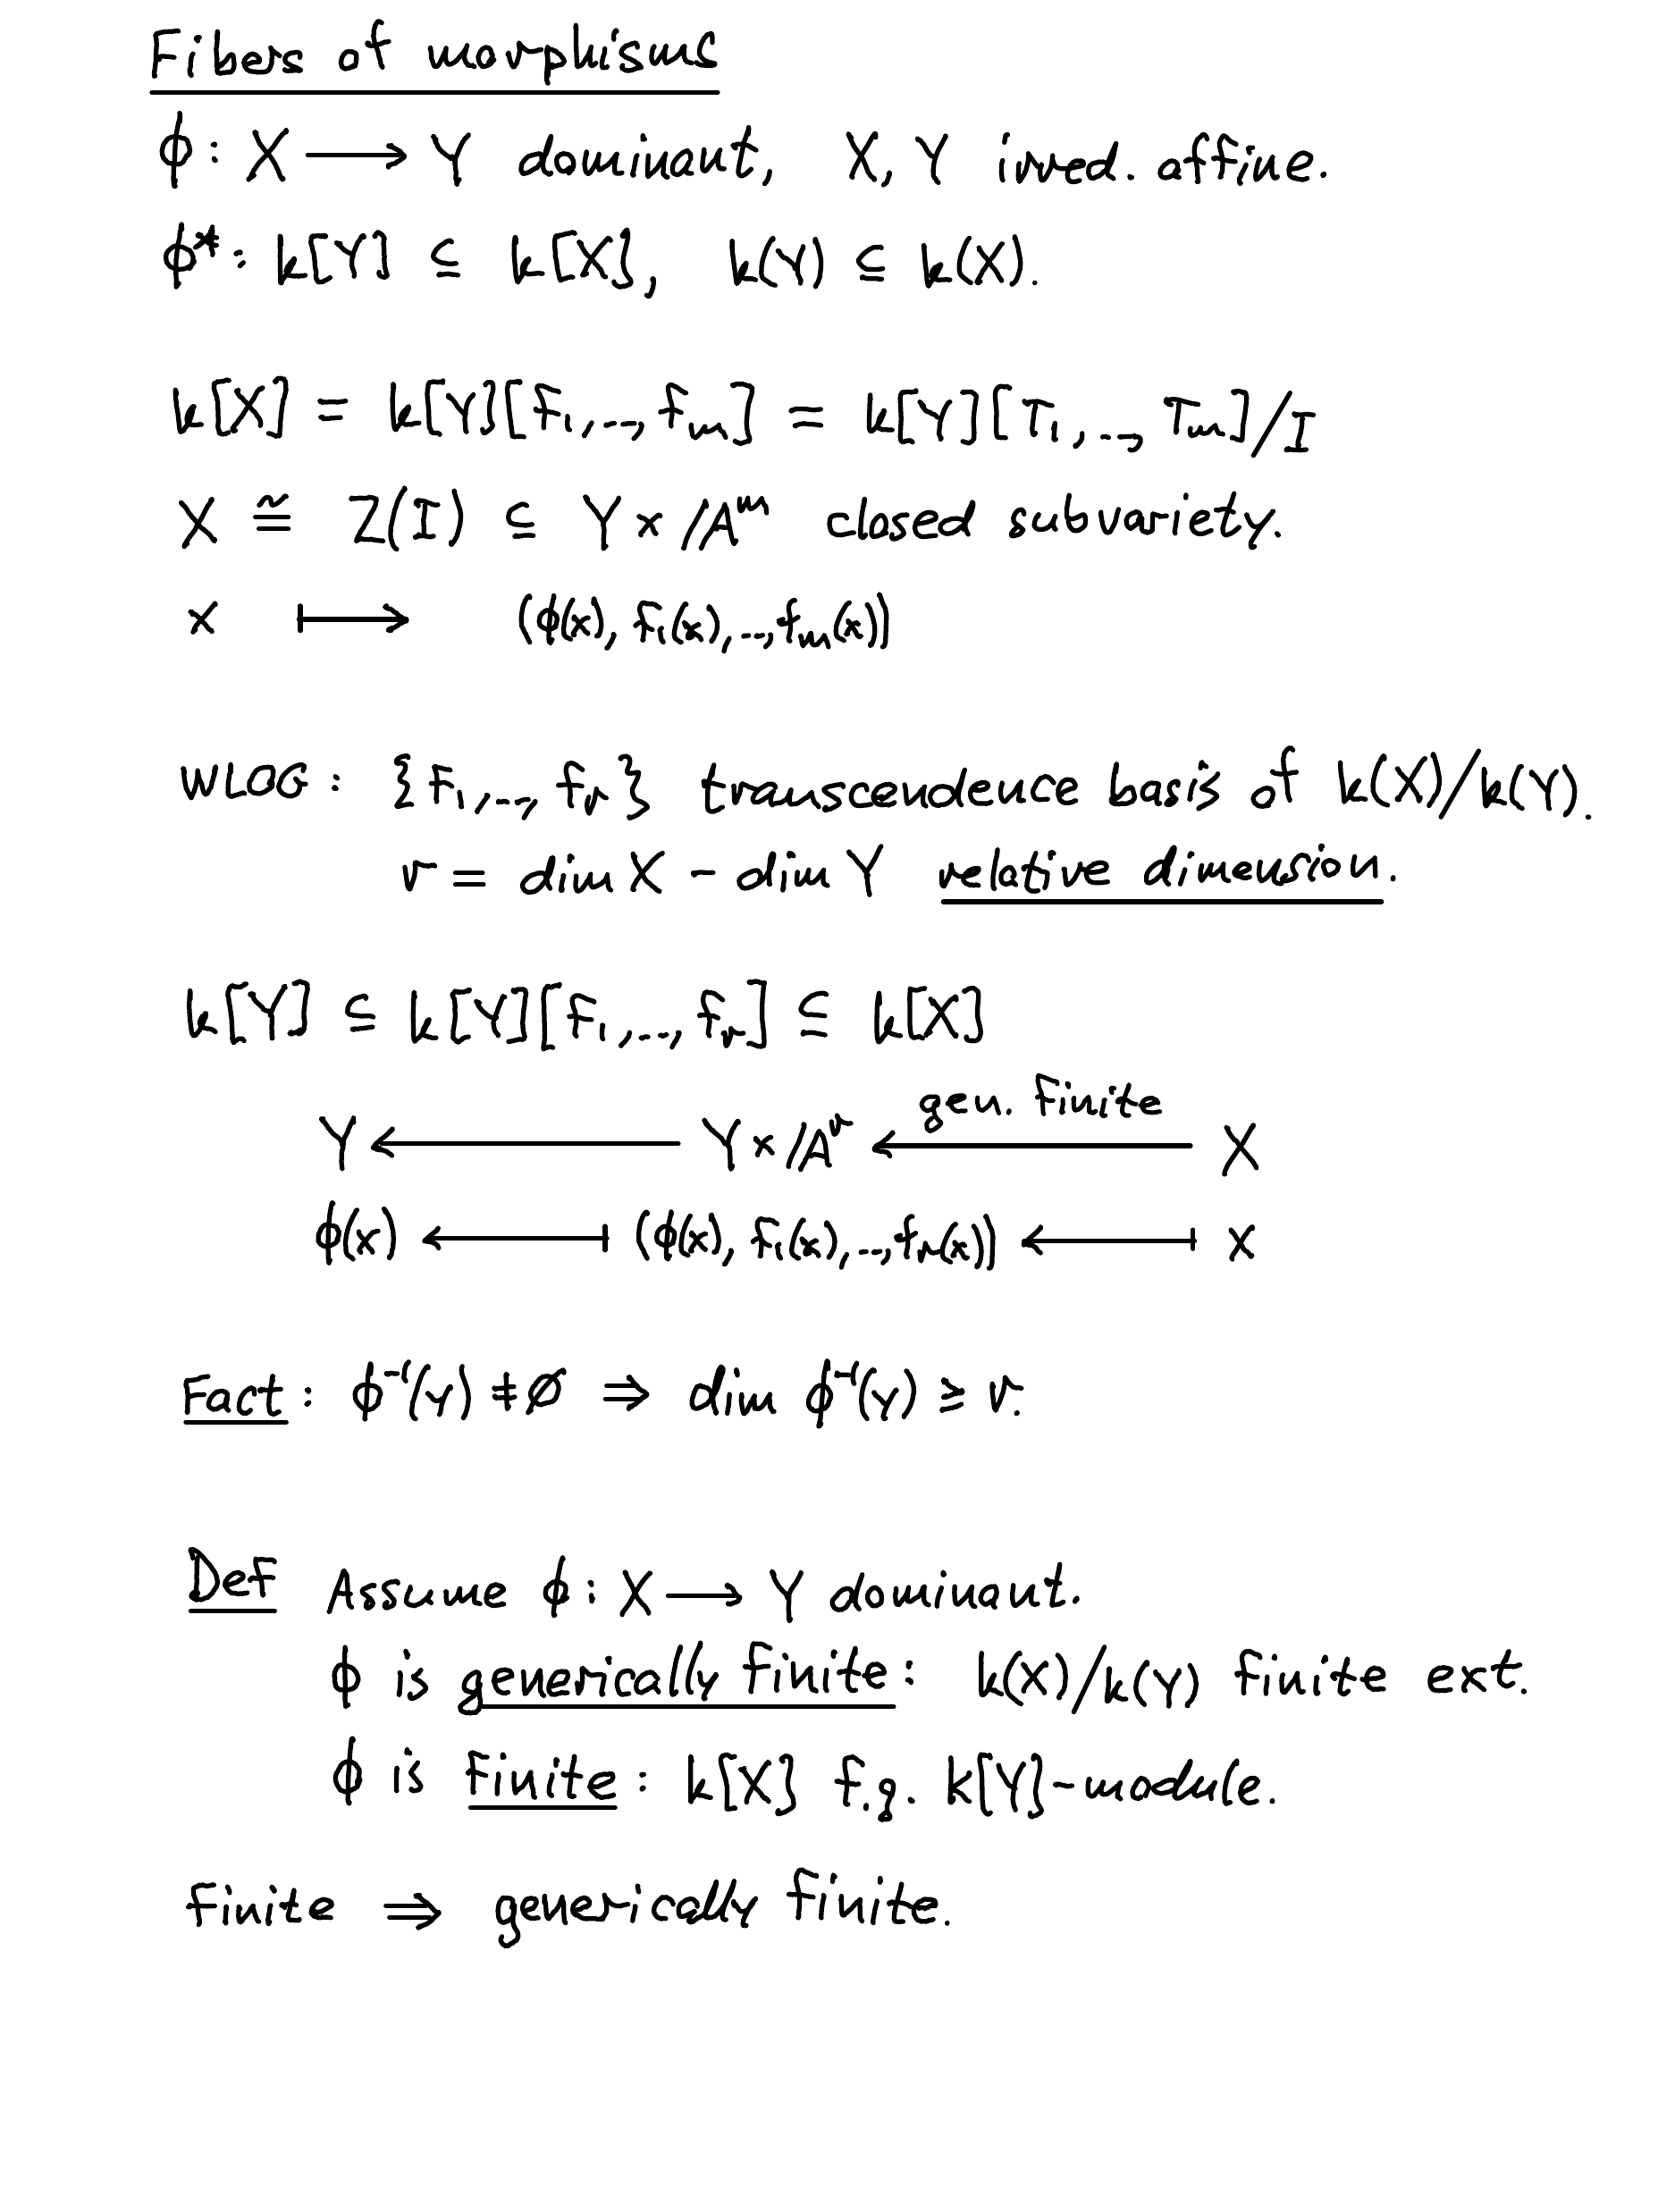 Fibers of morphisms
ϕ : X ⟶ Y dominant, X, Y irred. affine.
ϕ* : k[Y] ⊆ k[X], k(Y) ⊆ k(X).
k[X] = k[Y][f₁,..,fₘ] = k[Y][T₁,..,Tₘ]/I
X ≅ Z(I) ⊆ Y × 𝔸ᵐ closed subvariety.
x ⟼ (ϕ(x), f₁(x),..,fₘ(x))
WLOG : {f₁,..,fᵣ} transcendence basis of k(X)/k(Y).
r = dim X - dim Y relative dimension.
k[Y] ⊆ k[Y][f₁,..,fᵣ] ⊆ k[X]
Y ⟵ Y × 𝔸ʳ ⟵ gen. finite X
ϕ(x) ⟻ (ϕ(x), f₁(x),..,fᵣ(x)) ⟻ x
Fact : ϕ⁻¹(y) ≠ ∅ ⇒ dim ϕ⁻¹(y) ≥ r.
Def Assume ϕ : X ⟶ Y dominant.
ϕ is generically finite : k(X)/k(Y) finite ext.
ϕ is finite : k[X] f.g. k[Y]-module.
Finite ⇒ generically finite.